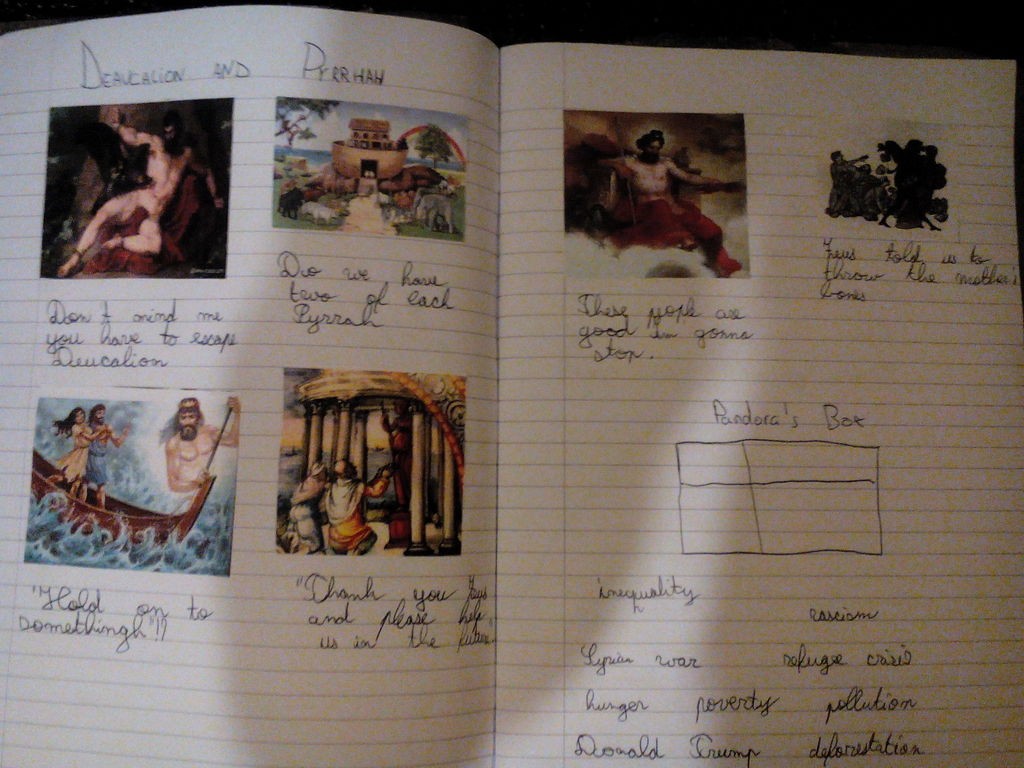 DEAUCALION AND PYRRHAH
Don't mind me
you have to escape
Deucalion
Do we have
two of each
Pyrrah
"Hold on to
somethingh"!!
"Thank you Zeus
and please help
us in the future"
These people are
good im gonna
stop.
Zeus told us to
throw the mother's
bones
Pandora's Box
inequality
rascism
Syrian war refugee crisis
hunger poverty pollution
Donald Trump deforestation